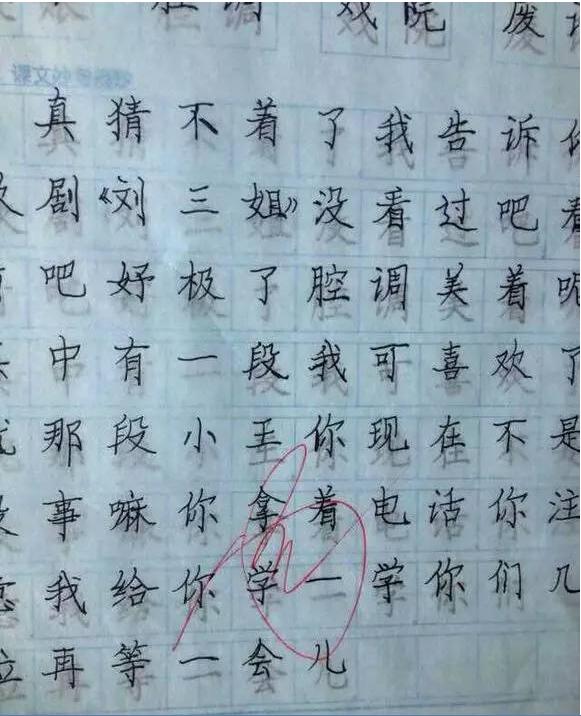 腔调 戏院 废
课文
真猜不着了我告诉你
剧《刘三姐》没看过吧看
吧好极了腔调美着呢
中有一段我可喜欢了
那段小王你现在不是
没事嘛你拿着电话你注
意我给你学一学你们几
位再等一会儿